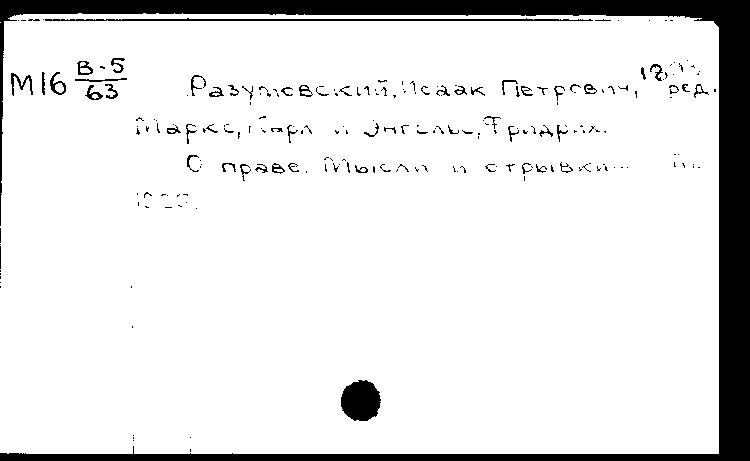 М16 В-5/63 Разумовский, Исаак Петрович, ред.
Маркс, Карл и Энгельс, Фридрих.
О праве. Мысли и отрывки...